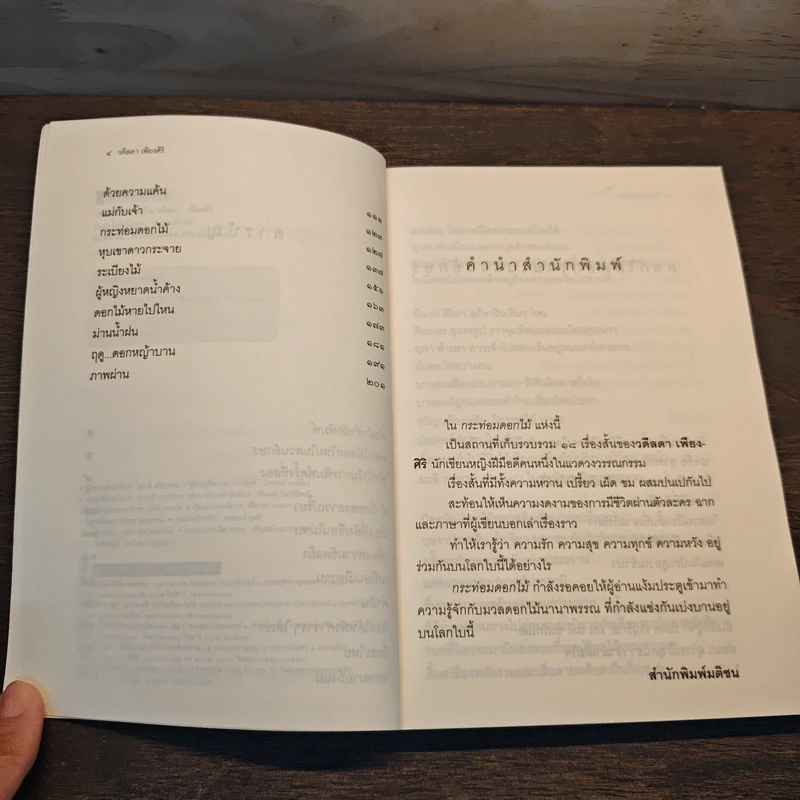 ๔ วดีลดา เพียงศิริ
ด้วยความแค้น ๑๑๑
แม่กับเจ้า ๑๒๑
กระท่อมดอกไม้ ๑๒๗
หุบเขาดาวกระจาย ๑๓๗
ระเบียงไม้ ๑๕๑
ผู้หญิงหยาดน้ำค้าง ๑๖๓
ดอกไม้หายไปไหน ๑๗๓
ม่านน้ำฝน ๑๘๑
ฤดู...ดอกหญ้าบาน ๑๙๑
ภาพผ่าน ๒๐๑
คำนำสำนักพิมพ์
ใน กระท่อมดอกไม้ แห่งนี้
เป็นสถานที่เก็บรวบรวม ๑๘ เรื่องสั้นของวดีลดา เพียง-
ศิริ นักเขียนหญิงฝีมือดีคนหนึ่งในแวดวงวรรณกรรม
เรื่องสั้นที่มีทั้งความหวาน เปรี้ยว เผ็ด ขม ผสมปนเปกันไป
สะท้อนให้เห็นความงดงามของการมีชีวิตผ่านตัวละคร ฉาก
และภาษาที่ผู้เขียนบอกเล่าเรื่องราว
ทำให้เรารู้ว่า ความรัก ความสุข ความทุกข์ ความหวัง อยู่
ร่วมกันบนโลกใบนี้ได้อย่างไร
กระท่อมดอกไม้ กำลังรอคอยให้ผู้อ่านแง้มประตูเข้ามาทำ
ความรู้จักกับมวลดอกไม้นานาพรรณ ที่กำลังแข่งกันเบ่งบานอยู่
บนโลกใบนี้
สำนักพิมพ์มติชน